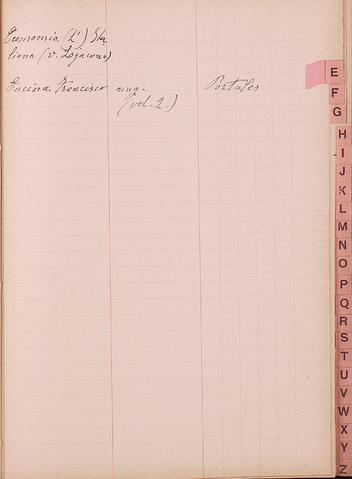 Economia (L') Ita
liana (v. Lojacono)
Encina Francisco
(vol. 2.)
Portales
E
F
G
H
I
J
K
L
M
N
O
P
Q
R
S
T
U
V
W
X
Y
Z